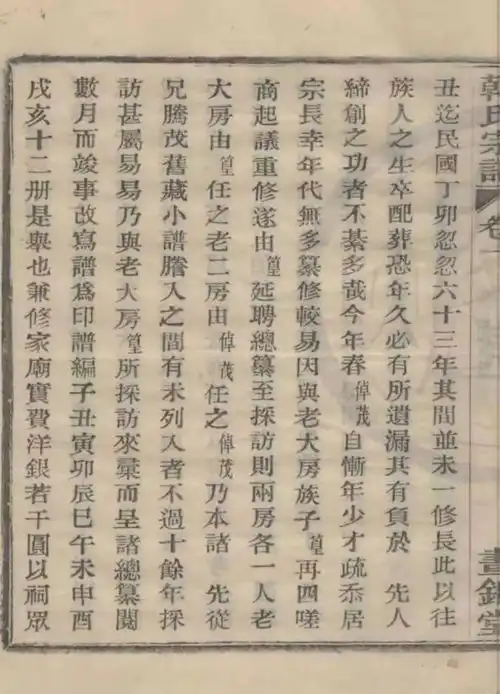 韓氏宗譜 卷一 晝錦堂
丑迄民國丁卯忽忽六十三年其間並未一修長此以往
族人之生卒配葬恐年久必有所遺漏其有負於 先人
締創之功者不綦多哉今年春倬茂自慚年少才疏忝居
宗長幸年代無多纂修較易因與老大房族子篁再四嗟
商起議重修遂由篁延聘總纂至採訪則兩房各一人老
大房由篁任之老二房由倬茂任之倬茂乃本諸 先從
兄騰茂舊藏小譜謄入之間有未列入者不過十餘年採
訪甚屬易易乃與老大房篁所採訪來彙而呈諸總纂閱
數月而竣事改寫譜為印譜編子丑寅卯辰巳午未申酉
戌亥十二册是舉也兼修家廟實費洋銀若干圓以祠眾